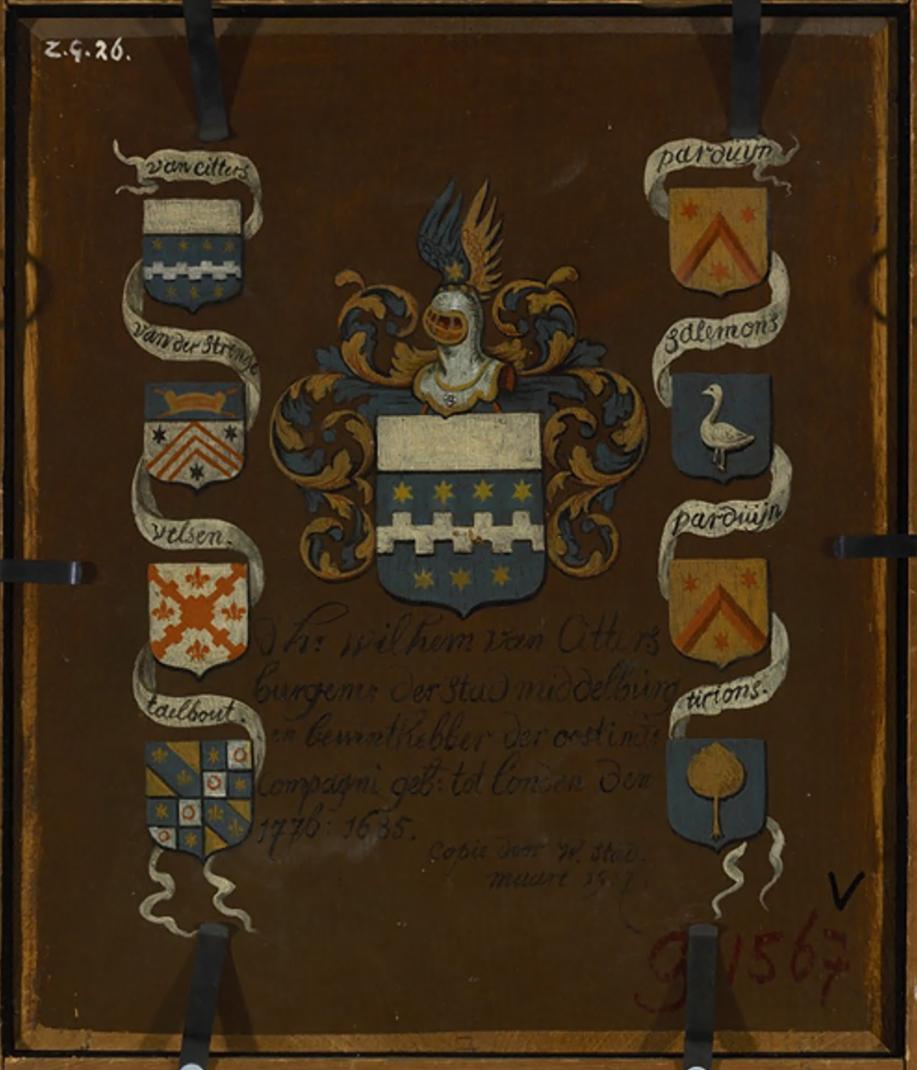 Z.G.26.
van citters
van der Strenge
velsen.
tailbout.
parduijn
salemons
parduijn
tirions.
dhr: wilhem van Citters
burgemr der stad middelburg
en bewinthebber der oostindis
Compagni geb: tot londen den
1685.
Copie door W. Stad.
maart
g 1567
V